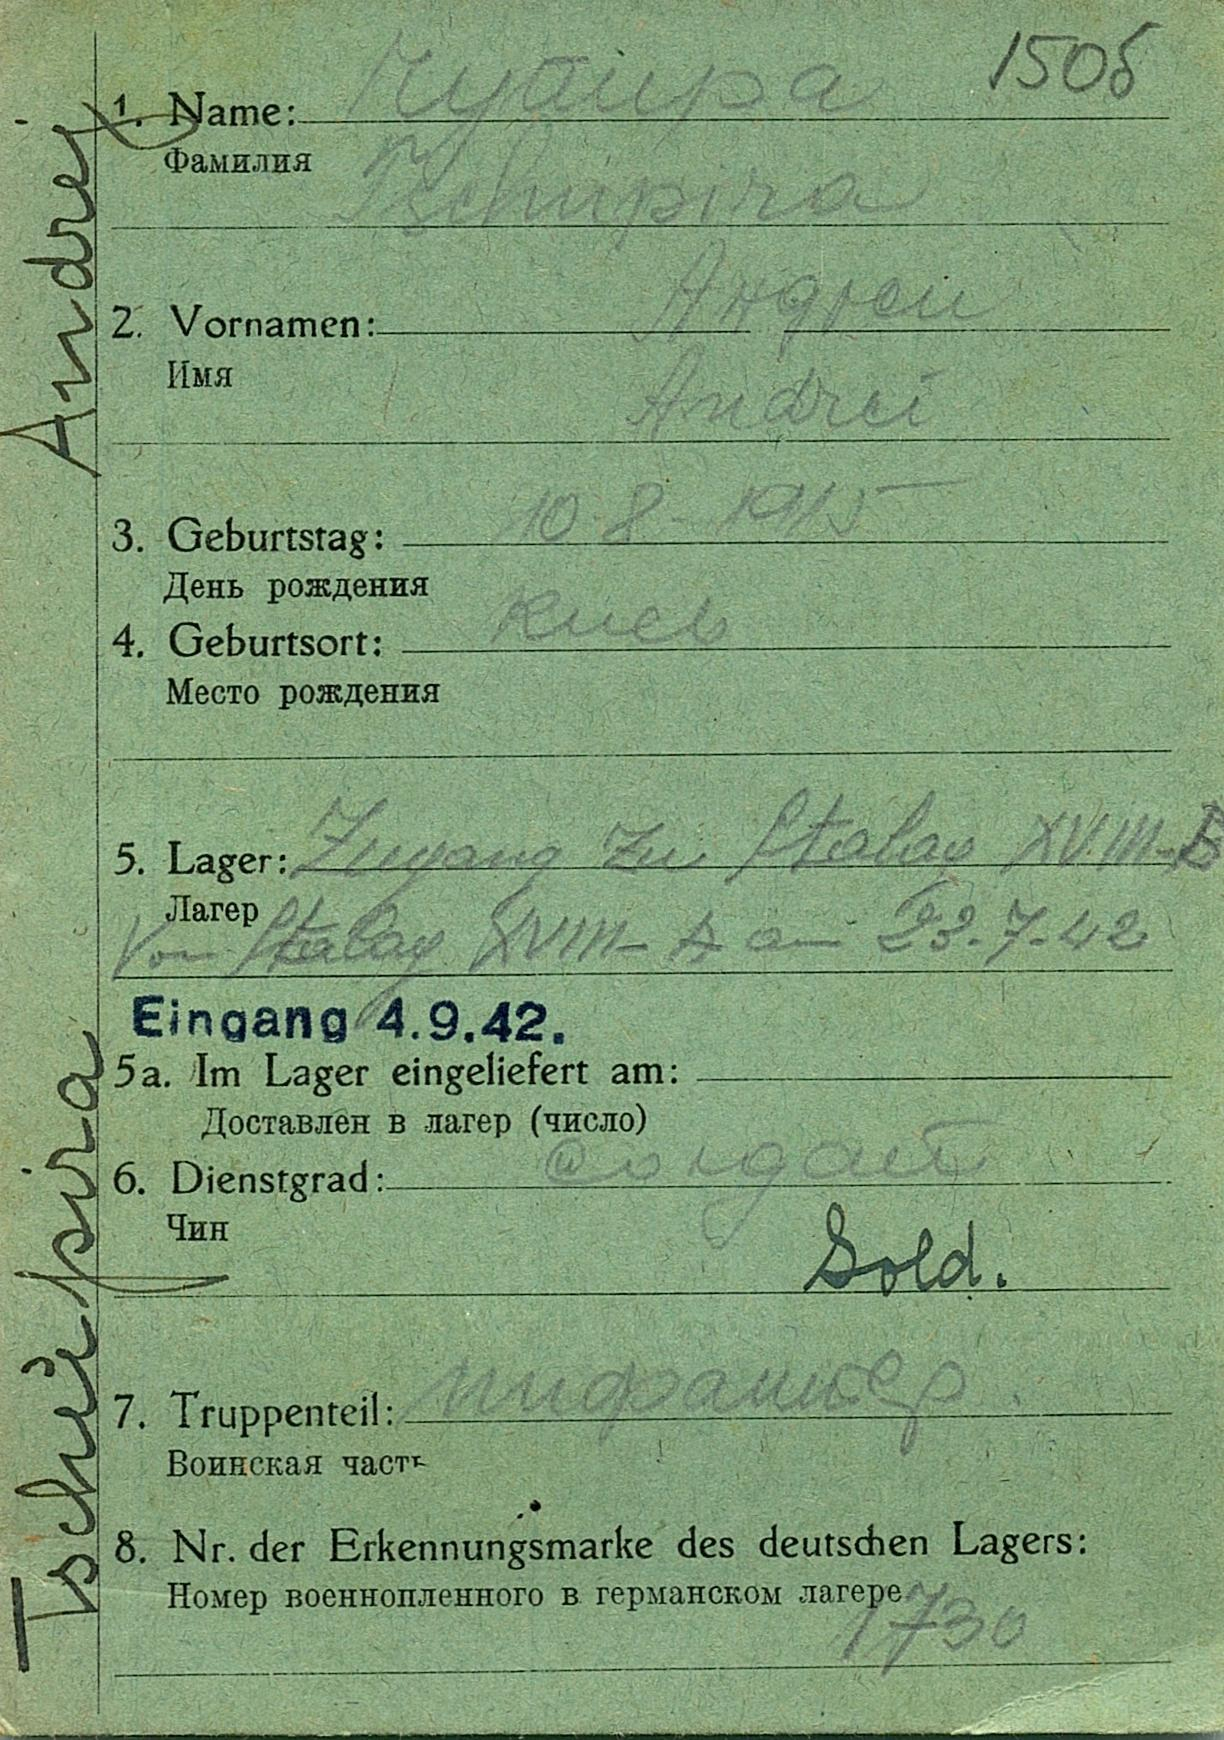 150б
1. Name: Чупира
Фамилия Tschupira
2. Vornamen: Андреи
Имя
Andrei
3. Geburtstag: 10 8 - 1915
День рождения
4. Geburtsort: Киев
Место рождения
5. Lager: Zugang zu Stalag XVIII-B
Лагер
Von Stalag XVIII-A am 23.7.42
Eingang 4.9.42.
5a. Im Lager eingeliefert am:
Доставлен в лагер (число)
6. Dienstgrad: солдат
Чин
Sold.
7. Truppenteil:
Воинская часть
8. Nr. der Erkennungsmarke des deutschen Lagers:
Номер военнопленного в германском лагере
1730
Tschúpira Andrej